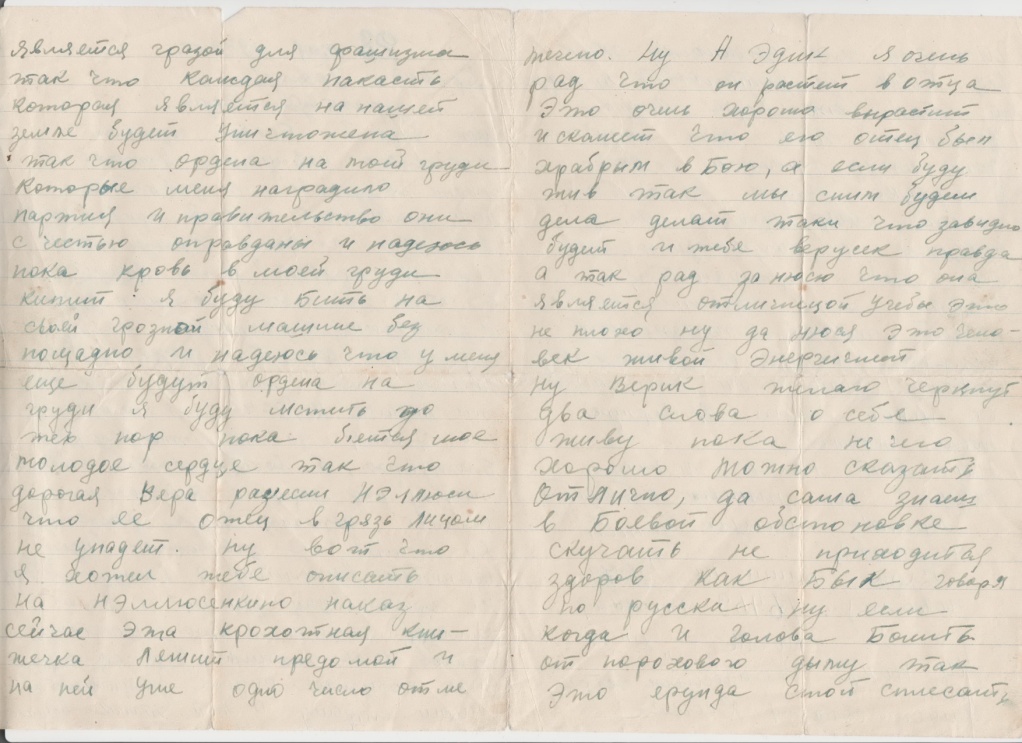 является грозой для фашизма
так что каждая пакасть
которая является на нашей
земле будет уничтожена
так что ордена на моей груди
которые меня наградило
партия и правительство они
с честью оправданы и надеюсь
пока кровь в моей груди
кипит я буду бить на
своей грозной машине без
пощадно и надеюсь что у меня
еще будут ордена на
груди я буду мстить до
тех пор пока бьется мое
молодое сердце так что
дорогая Вера Нэлюси
что ее отец в грязь лицом
не упадет. ну вот что
я хотел тебе описать
на Нэллюсенкино наказ
сейчас эта крохотная кни-
жечка лежит предомой и
на ней уже одно число отме
течено. Ну А Эдик я очень
рад что он растет в отца
Это очень хорошо вырастит
и скажет что его отец был
храбрым в Бою, а если буду
жив так мы сним будем
дела делат таки что завидно
будет и тебе верусек правда
а так рад за нюсю что она
является отличницой учебы это
не плохо ну да нюся это чело-
век живой энергичной
ну Верик желаю черкнут
два слова о себе
живу пока не чего
хорошо можно сказать
отлично, да сама знаеш
в Боевой обстановке
скучать не приходится
здоров как Бык говоря
по русски ну если
когда и голова болить
от порохового дыму так
Это ерунда стой сплесать